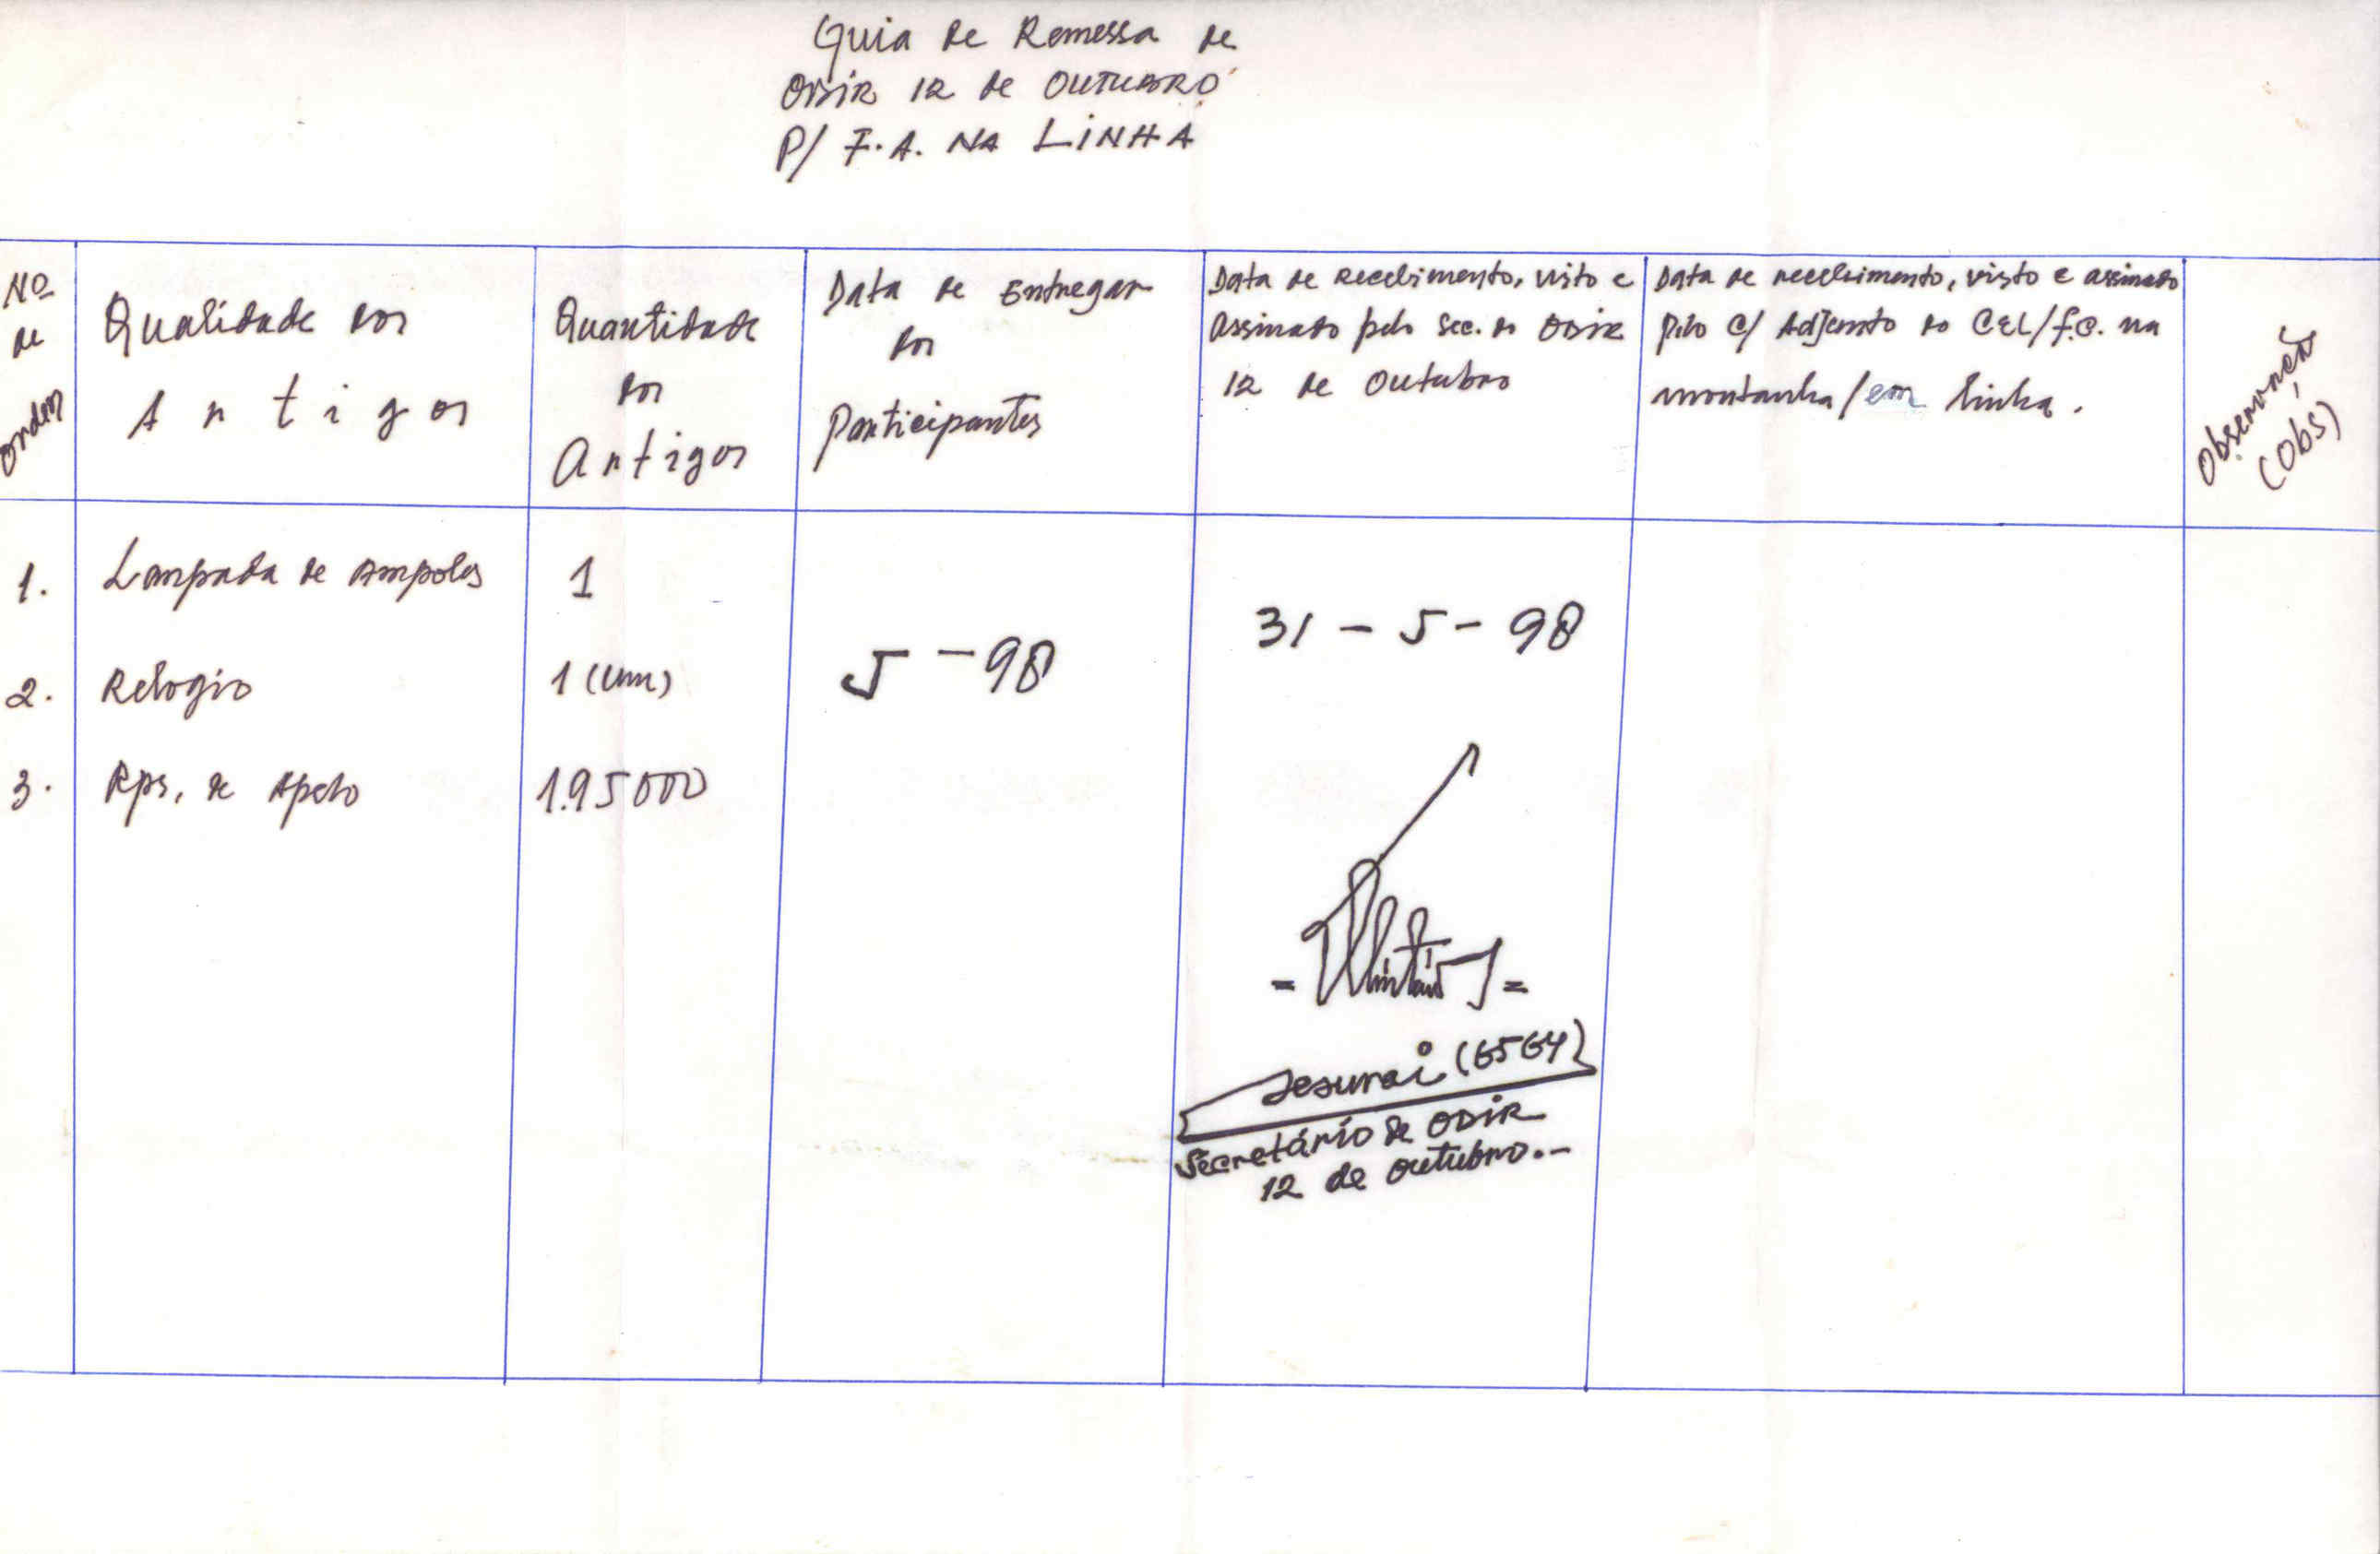 Guia de Remessa de
ODIR 12 de OUTUBRO
P/ F.A. NA LINHA
Nº
de
orden
Qualidade dos
Artigos
Quantidade
dos
Artigos
Data de Entregar
dos
Participantes
Data de Recebimento, visto e
assinado pelo Sec. do ODIR
12 de Outubro
Data de recebimento, visto e assinado
pelo C/ Adjunto do CEL/F.C. na
montanha/em linha.
Observação
(Obs)
1.
Lampada de Ampolas
1
2.
Relogio
1 (um)
3.
Rps. de Apelo
195000
5-98
31-5-98
(6564)
Secretário de ODIR
12 de outubro.-